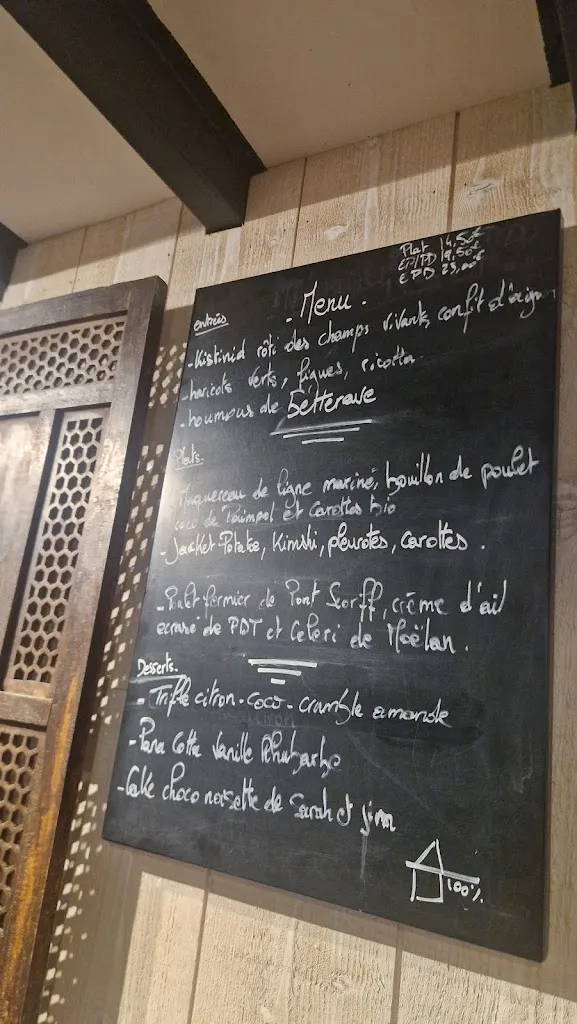 Plat 14,50€
EP/PD 19,50€
EPD 23,00€
- Menu -
entrées
- Kistinid rôti des champs vivants, confit d'oignon
- haricots verts, figues, ricotta.
- houmous de Betterave
Plats.
- Maquereau de ligne mariné, bouillon de poulet
coco de Paimpol et Carottes bio
- Jacket Potatoe, Kimshi, pleurotes, carottes.
- Poulet fermier de Pont Scorff, crème d'ail
ecrasé de PDT et Céleri de Moëlan.
Desserts.
- Trifle citron - coco - crumble amande
- Pana Cotta Vanille Rhubarbe
- Cake choco noisette de Sarah et Jinn
100%